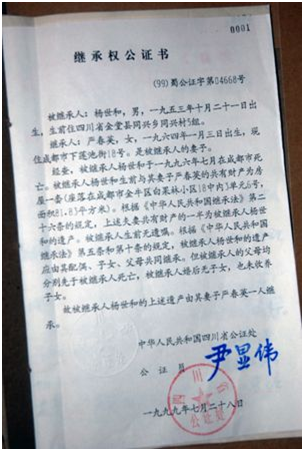 0001
继承权公证书
(99)蜀公证字第04668号
被继承人：杨世和，男，一九五三年十月二十一日出
生，生前住四川省金堂县同兴乡同兴村5组。
继承人：严春英，女，一九六四年一月三日出生，现
住成都市下莲池街18号。是被继承人的妻子。
经查，被继承人杨世和于一九九六年七月在成都市死
亡。被继承人杨世和生前与其妻子严春英的共有财产为房
屋一套(座落在成都市金牛区白果林小区18中内3单元6号，
面积81.83平方米)。根据《中华人民共和国继承法》第二
十六条的规定，上述夫妻共有财产的一半为被继承人杨世
和的遗产。被继承人生前无遗嘱。根据《中华人民共和国
继承法》第五条和第十条的规定，被继承人杨世和的遗产
应由其配偶、子女、父母共同继承。但被继承人的父母均
分别先于被继承人死亡，被继承人婚后无子女，也未收养
子女。
故被继承人杨世和的上述遗产由其妻子严春英一人继
承。
中华人民共和国四川省公证处
公证员 尹显伟
四川省
公证处
一九九九年七月二十八日